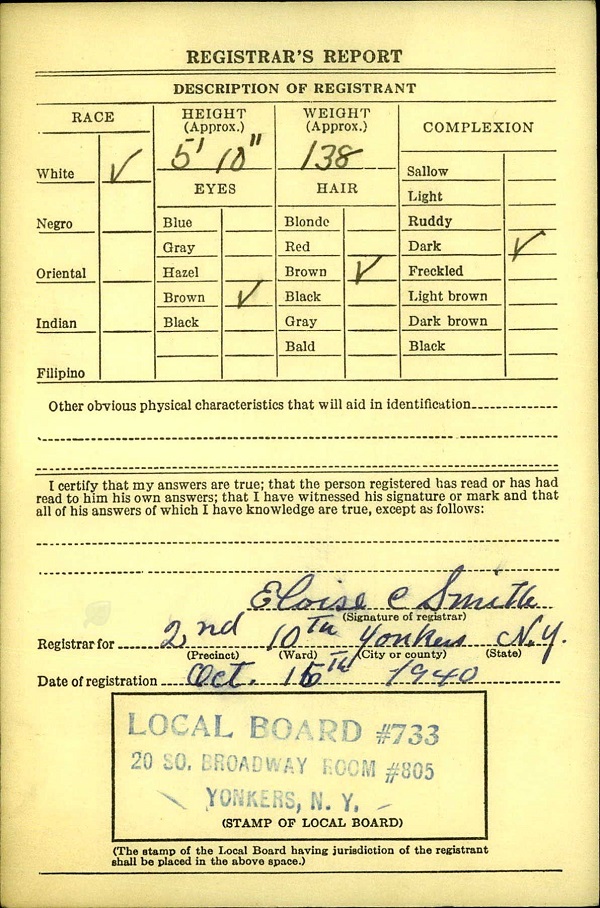 REGISTRAR'S REPORT
DESCRIPTION OF REGISTRANT
RACE
HEIGHT
(Approx.)
WEIGHT
(Approx.)
COMPLEXION
5' 10"
138
White ✓
EYES
HAIR
Sallow
Light
Negro
Blue
Blonde
Ruddy
Gray
Red
Dark ✓
Oriental
Hazel
Brown ✓
Freckled
Brown ✓
Black
Light brown
Indian
Black
Gray
Dark brown
Bald
Black
Filipino
Other obvious physical characteristics that will aid in identification
I certify that my answers are true; that the person registered has read or has had
read to him his own answers; that I have witnessed his signature or mark and that
all of his answers of which I have knowledge are true, except as follows:
Eloise C Smith
(Signature of registrar)
Registrar for 2nd 10th Yonkers N.Y.
(Precinct) (Ward) (City or county) (State)
Date of registration Oct. 16th 1940
LOCAL BOARD #733
20 SO. BROADWAY ROOM #805
YONKERS, N. Y.
(STAMP OF LOCAL BOARD)
(The stamp of the Local Board having jurisdiction of the registrant
shall be placed in the above space.)